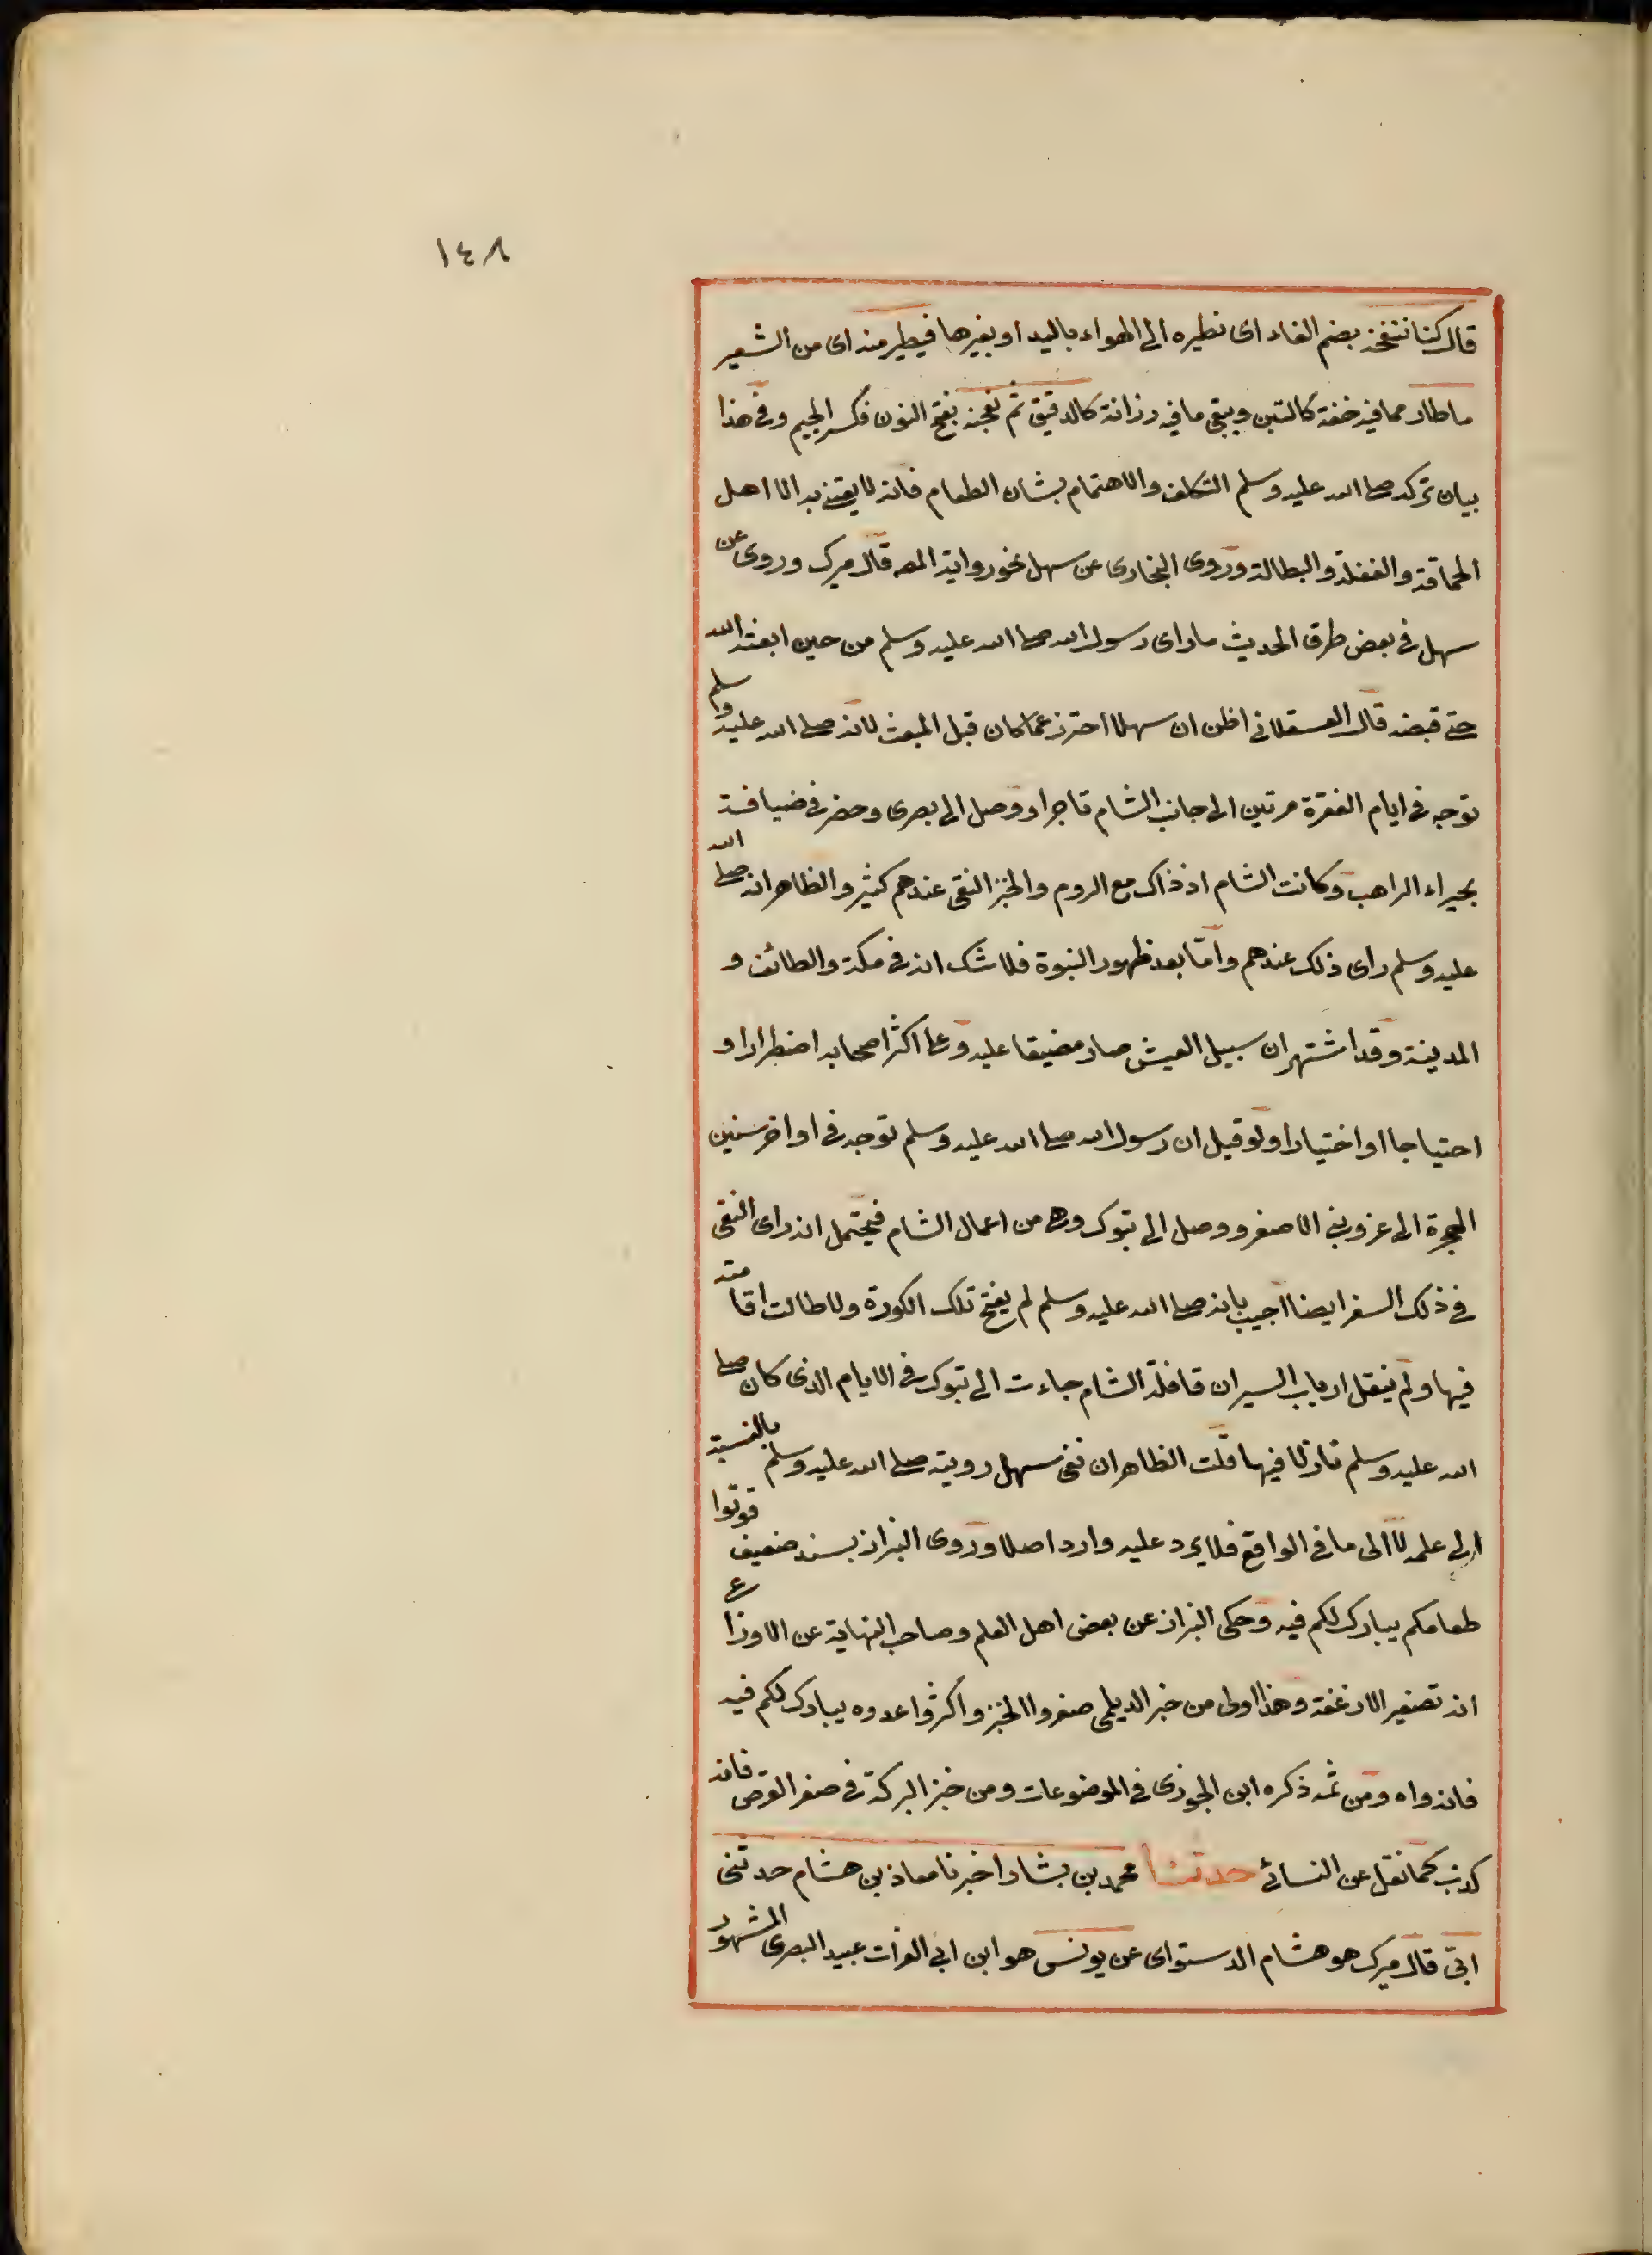 ١٤٨
قال كنا ننفخه بضم الفاء اى نطيره الى الهواء باليد او بغيرها فيطير منه اى من الشعير
ما طار مما فيه خفة كالتبن ويبقى ما فيه رزانة كالدقيق ثم نعجنه بفتح النون فكسر الجيم وفى هذا
بيان تركه صلى الله عليه وسلم التكلف والاهتمام بشان الطعام فانه لا يعتنى به الا اهل
الحماقة والغفلة والبطالة وروى البخارى عن سهل نحو رواية المص قال ميرك وروى عن
سهل فى بعض طرق الحديث ما راى رسول الله صلى الله عليه وسلم من حين ابعثه الله
حتى قبضه قال العسقلانى اظن ان سهلا احترز عما كان قبل المبعث لانه صلى الله عليه وسلم
توجه فى ايام الفترة مرتين الى جانب الشام تاجرا ووصل الى بصرى وحضر فى ضيافة
بحيراء الراهب وكانت الشام اذ ذاك مع الروم والخبز النقى عندهم كثير والظاهر انه صلى الله
عليه وسلم راى ذلك عندهم واما بعد ظهور النبوة فلا شك انه فى مكة والطائف و
المدينة وقد اشتهر ان سبيل العيش صار مضيقا عليه وعلى اكثر اصحابه اضطرارا و
احتياجا او اختيارا ولو قيل ان رسول الله صلى الله عليه وسلم توجه فى اواخر سنين
الهجرة الى غزو بنى الاصفر ووصل الى تبوك وهى من اعمال الشام فيحتمل انه راى النقى
فى ذلك السفر ايضا اجيب بانه صلى الله عليه وسلم لم يفتح تلك الكورة ولا طالت اقامته
فيها ولم ينقل ارباب السير ان قافلة الشام جاءت الى تبوك فى الايام الذى كان صلى
الله عليه وسلم نازلا فيها قلت الظاهر ان نفى سهل رويته صلى الله عليه وسلم بالنسبة
الى علمه لا الى ما فى الواقع فلا يرد عليه وارد اصلا وروى البزاز بسند ضعيف قوتوا
طعامكم يبارك لكم فيه وحكى البزاز عن بعض اهل العلم وصاحب النهاية عن الاوزاعى
انه تصغير الارغفة وهذا اولى من خبر الديلمى صغروا الخبز واكثروا عدده يبارك لكم فيه
فانه واه ومن ثمه ذكره ابن الجوزى فى الموضوعات ومن خبز البركة فى صغر القرص فانه
كذب كما نقل عن النسائى حدثنا محمد بن بشار اخبرنا معاذ بن هشام حدثنى
ابى قال ميرك هو هشام الدستواى عن يونس هو ابن ابى الفرات عبيد البصرى المشهور